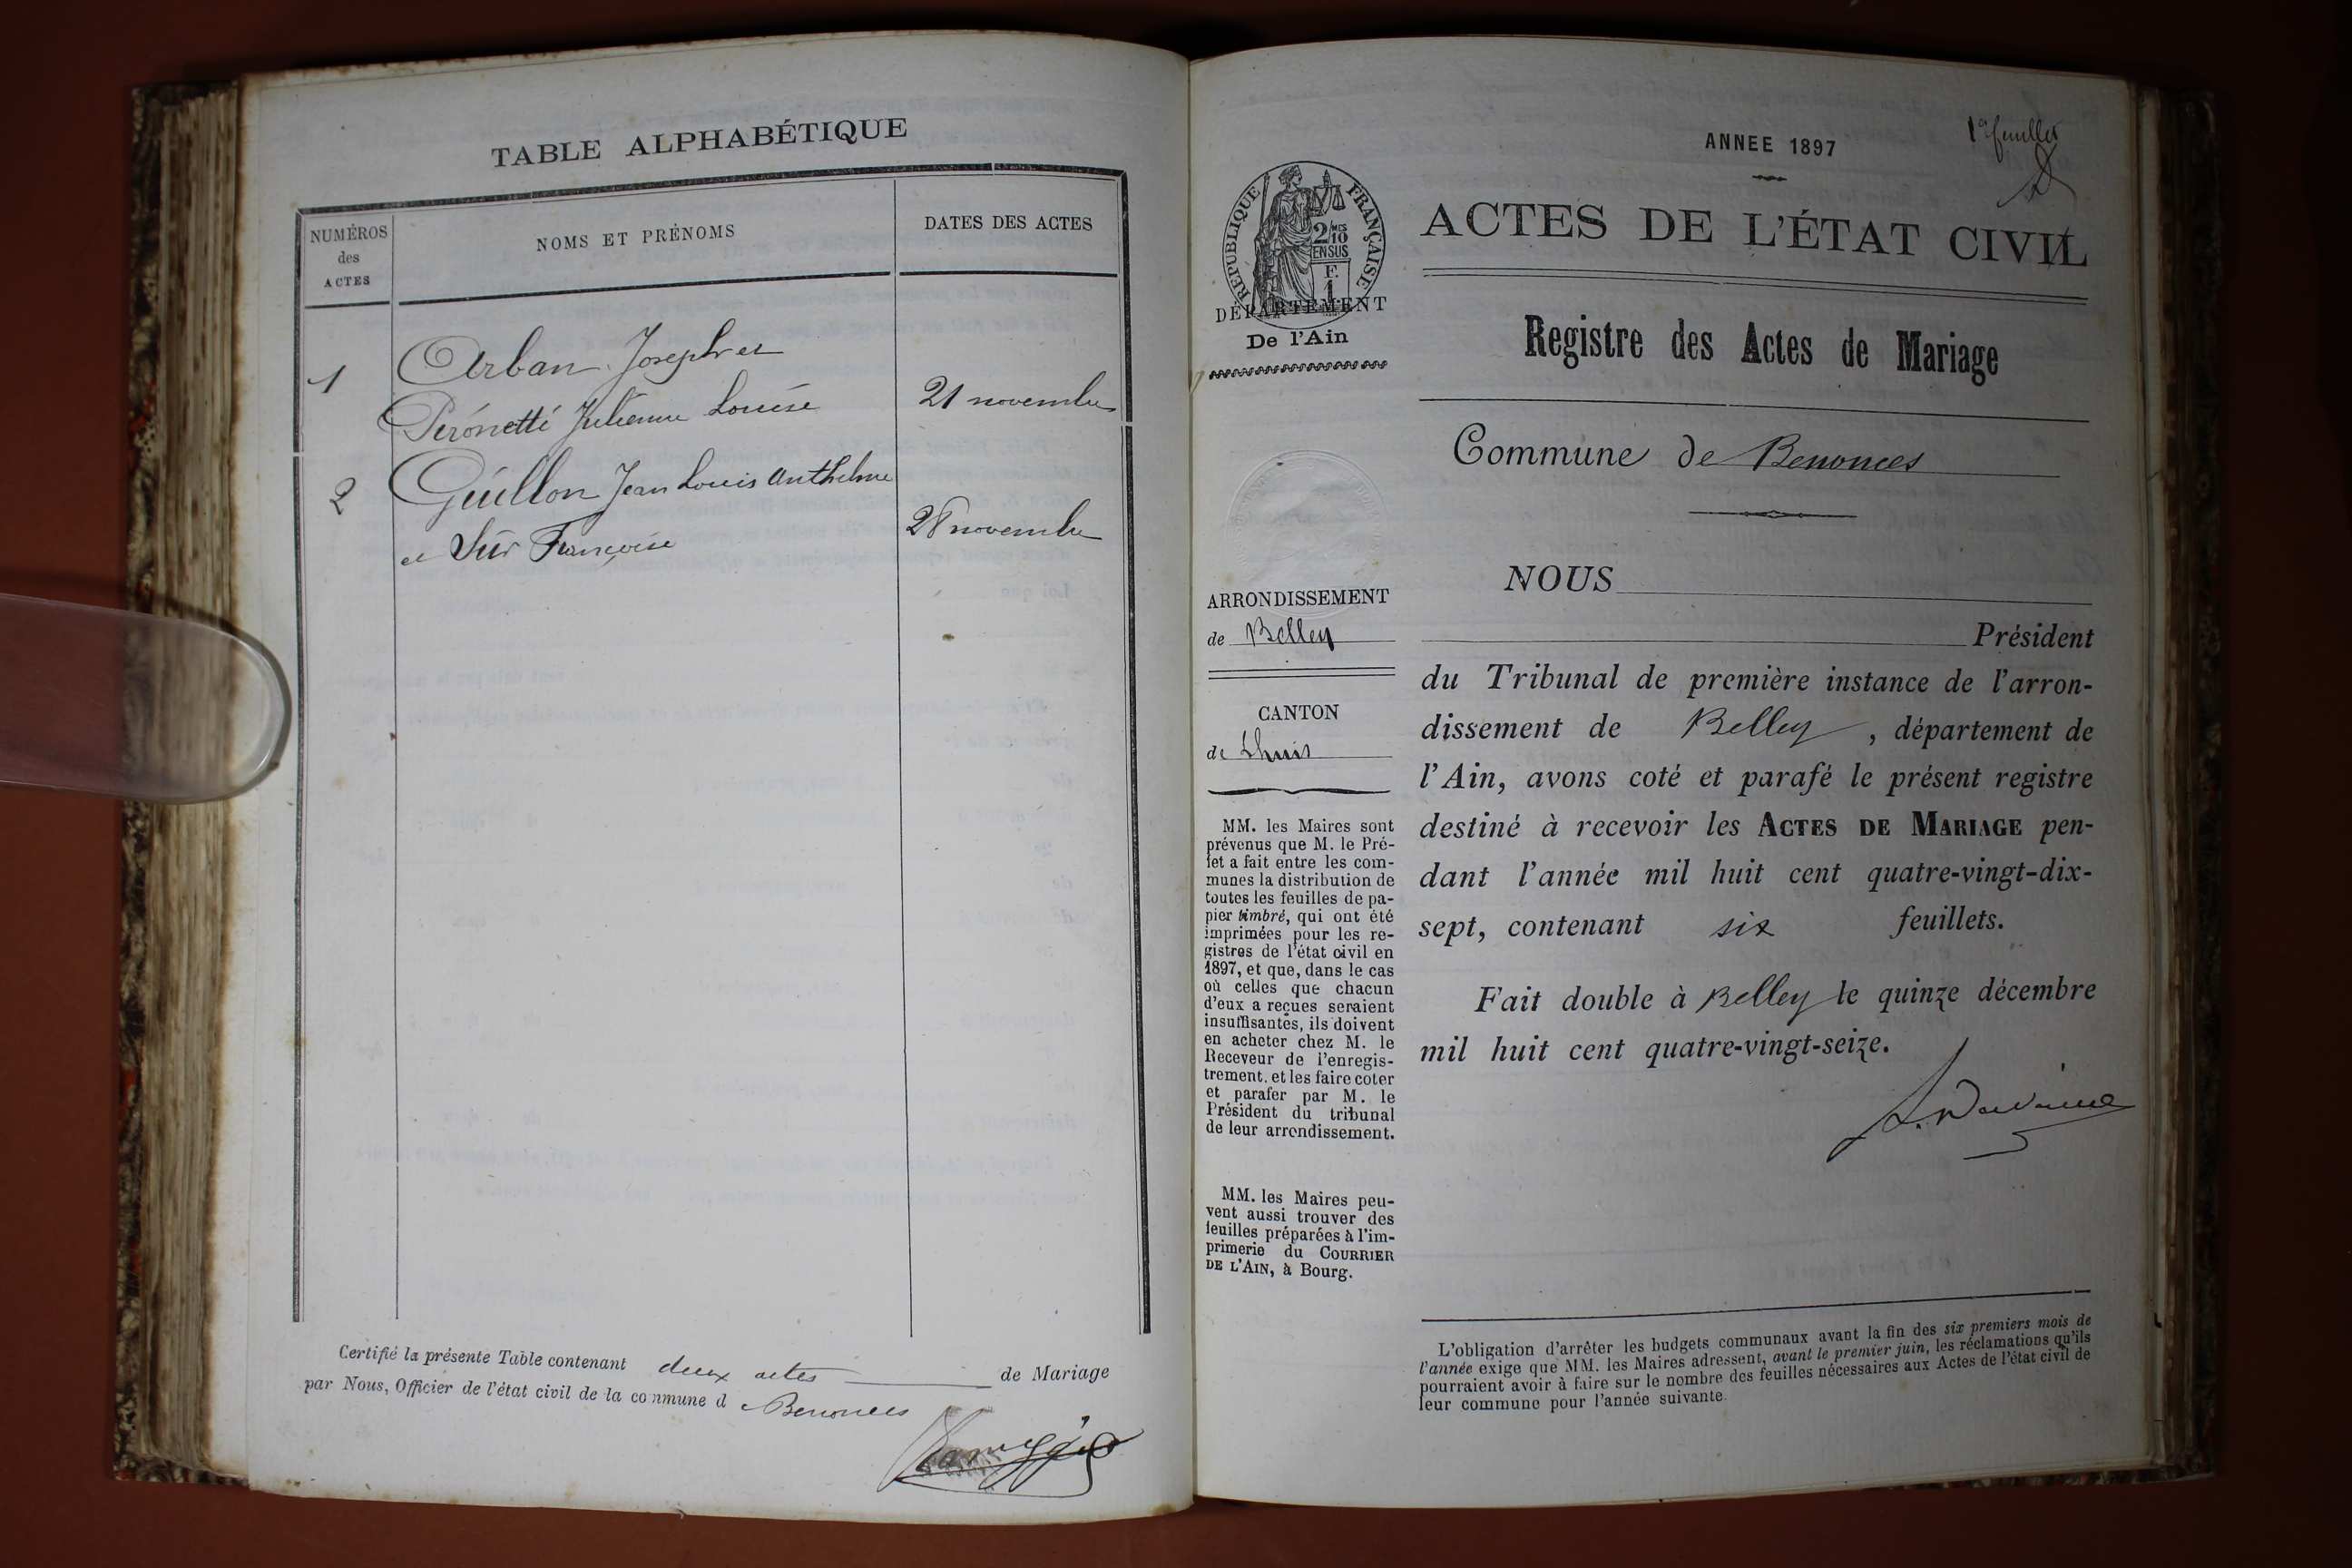 TABLE ALPHABÉTIQUE
NUMÉROS
des
ACTES
NOMS ET PRÉNOMS
DATES DES ACTES
1
Arban Joseph et
Péronetti Julienne Louise
21 novembre
2
Guillon Jean Louis Anthelme
et Sur Françoise
28 novembre
Certifié la présente Table contenant deux actes de Mariage
par Nous, Officier de l'état civil de la commune d e Benonces
1er feuillet
ANNEE 1897
RÉPUBLIQUE FRANÇAISE
2/10 MES
EN SUS
F.
1
DÉPARTEMENT
De l'Ain
ACTES DE L'ÉTAT CIVIL
Registre des Actes de Mariage
Commune de Benonces
ARRONDISSEMENT
de Belley
CANTON
de Lhuis
MM. les Maires sont
prévenus que M. le Pré-
fet a fait entre les com-
munes la distribution de
toutes les feuilles de pa-
pier timbré, qui ont été
imprimées pour les re-
gistres de l'état civil en
1897, et que, dans le cas
où celles que chacun
d'eux a reçues seraient
insuffisantes, ils doivent
en acheter chez M. le
Receveur de l'enregis-
trement. et les faire coter
et parafer par M. le
Président du tribunal
de leur arrondissement.
MM. les Maires peu-
vent aussi trouver des
feuilles préparées à l'im-
primerie du COURRIER
DE L'AIN, à Bourg.
NOUS
Président
du Tribunal de première instance de l'arron-
dissement de Belley, département de
l'Ain, avons coté et parafé le présent registre
destiné à recevoir les ACTES DE MARIAGE pen-
dant l'année mil huit cent quatre-vingt-dix-
sept, contenant six feuillets.
Fait double à Belley le quinze décembre
mil huit cent quatre-vingt-seize.
L'obligation d'arrêter les budgets communaux avant la fin des six premiers mois de
l'année exige que MM. les Maires adressent, avant le premier juin, les réclamations qu'ils
pourraient avoir à faire sur le nombre des feuilles nécessaires aux Actes de l'état civil de
leur commune pour l'année suivante.